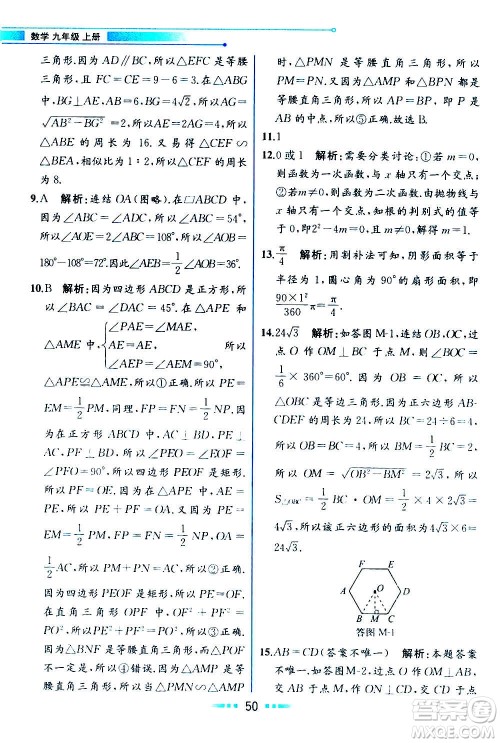 数学 九年级 上册
三角形. 因为 AD∥BC,所以 △CEF 是等
腰三角形. FC=CE=9-6=3. 在 △ABG
中, BG⊥AE, AB=6, BG=4√2, 所以 AG=
√(AB²-BG²)=2, 所以 AE=4. 所以 △ABE
的周长为 16. 又易得 △CEF∽
△BEA, 相似比为 1∶2, 所以 △CEF 的周长
为 8.
9.A 解析:连结OA(图略). 在▱ABCD 中,
∠ABC=∠ADC=54°, 所以∠ABC=54°,
所以∠AOE=2∠ADC=108°, 所以∠AOB=
180°-108°=72°. 又∠AEB=1/2∠AOB=36°.
10.B 解析:因为四边形 ABCD 是正方形,所
以∠BAC=∠DAC=45°. 在 △APE 和
△AME 中, {∠PAE=∠MAE,
AE=AE, 所以
∠AEP=∠AEM,
△APE≌△AME, 所以①正确. 所以 PE=
EM=1/2PM, 同理, FP=FN=1/2NP. 因
为在正方形 ABCD 中, AC⊥BD, PE⊥
AC, PF⊥BD, 所以∠PEO=∠EOF=
∠PFO=90°, 所以四边形 PEOF 是矩形.
所以 PF=OE. 在 △APE 中, AE=PE=
EM=1/2PM, 所以 PE+PF=OA. 又 PE=
EM=1/2PM, FP=FN=1/2NP, OA=
1/2AC, 所以 PM+PN=AC, 所以②正确.
因为四边形 PEOF 是矩形, 所以 PE=OF.
在直角三角形 OPF 中, OF²+PF²=
PO², 所以 PE²+PF²=PO², 所以③正确.
因为 △BNF 是等腰直角三角形, 而 △POF
不一定是, 所以④错误. 因为 △AMP 是等腰
直角三角形, 当 △PMN∽△AMP 时,
△PMN 是等腰直角三角形. 所以
PM=PN. 又因为 △AMP 和 △BPN 都是
等腰直角三角形, 所以 AP=BP, 即 P 是
AB 的中点, 所以⑤正确. 故选 B.
11.1
12.0 或 1 解析:需要分类讨论:①若 m=0,
则函数为一次函数, 与 x 轴有一个交点;
②若 m≠0, 则函数为二次函数. 由抛物线与
x 轴只有一个交点, 知根的判别式的值等于
0, 即 2²-4m=0, 解得 m=1.
13.π/4 解析:用割补法可知, 阴影面积等于
半径为 1, 圆心角为 90°的扇形面积, 即
90×1²/360 π=π/4.
14.24√3 解析:如答图 M-1, 连结 OB, OC, 过
点 O 作 OM⊥BC 于点 M, 所以∠BOC=
1/6×360°=60°. 因为 OB=OC, 所以
△OBC 是等边三角形. 因为正六边形 AB-
CDEF 的周长为 24, 所以 BC=24÷6=4.
所以 OB=BC=4, 所以 BM=1/2BC=2,
所以 OM=√(OB²-BM²)=2√3, 所以
S△OBC=1/2BC·OM=1/2×4×2√3=
4√3, 所以该正六边形的面积为 4√3×6=
24√3.
F E
A O D
B M C
答图 M-1
15.AB=CD(答案不唯一) 解析:本题答案
不唯一. 如答图 M-2, 过点 O 分别作
50